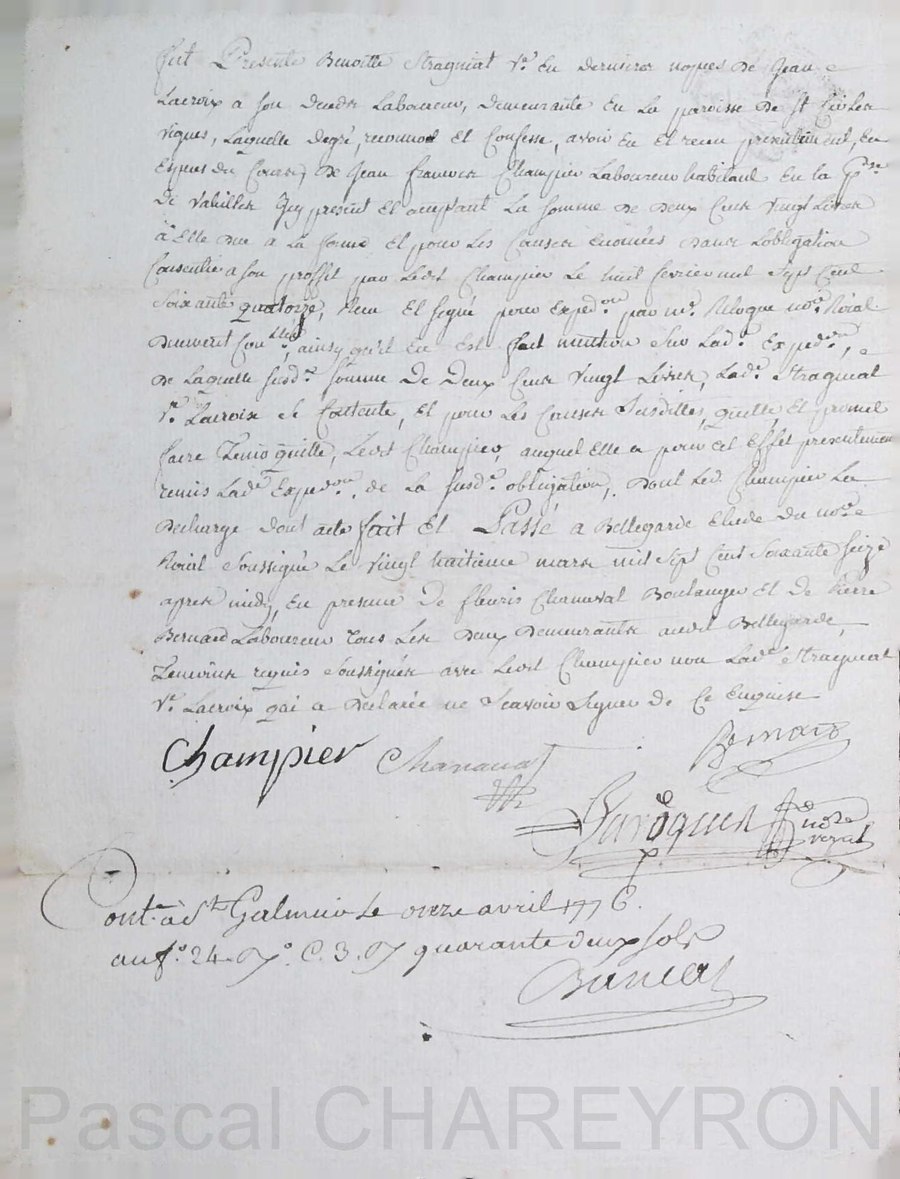 fut Presente Benoitte Stragniat Ve. En dernieres nopces De Jean
Lacroix a son deceder Laboureur, demeurante En La paroisse De St Cir Les
vignes, Laquelle degré, reconnoit Et Confesse, avoir Eu et recu presentement, En
Especes du Cours, De Jean francois Champier Laboureur habitant En la Psse
De Vallilles Icy present Et acceptant La somme De Deux Cens Vingt Livres
à Elle Due a La forme Et pour Les Causes Enoncées Dans Lobligation
Consentie a son proffit par Ledit Champier Le huit fevrier mil Sept Cent
Soixante quatorze, Recu Et signé pour Exped.on par me. Relogue nore. Roial
ainsy quil En Est fait mention Sur Lade. Exped.on,
De Laquelle susde. somme De Deux Cens Vingt Livres, Lade. Stragniat
Ve. Lacroix se Contente, Et pour Les Causes Susdittes, quitte Et promet
faire Tenir quitte, Ledit Champier, auquel Elle a pour cet Effet presentement
remis Lade. Exped.on. de La susde. obligation, Dont Led. Champier La
Decharge dont acte fait Et Passé a Bellegarde Etude Du nore.
Roial soussigné Le Vingt huitieme mars mil Sept Cent Soixante Seize
apres midy, En presence De fleuris Chanavat Boulanger Et De Pierre
Bernard Laboureur Tous Les Deux Demeurants audit Bellegarde,
Temoins requis soussignés avec Ledit Champier non Lade. Stragniat
Ve. Lacroix qui a Declarée ne Scavoir Signer De Ce Enquise
Champier Chanavat Bernard
nore
royal
Cont.é à St Galmier Le onze avril 1776.
au fo. 24. Vo. C. 3. quarante deux sols
Pascal CHAREYRON